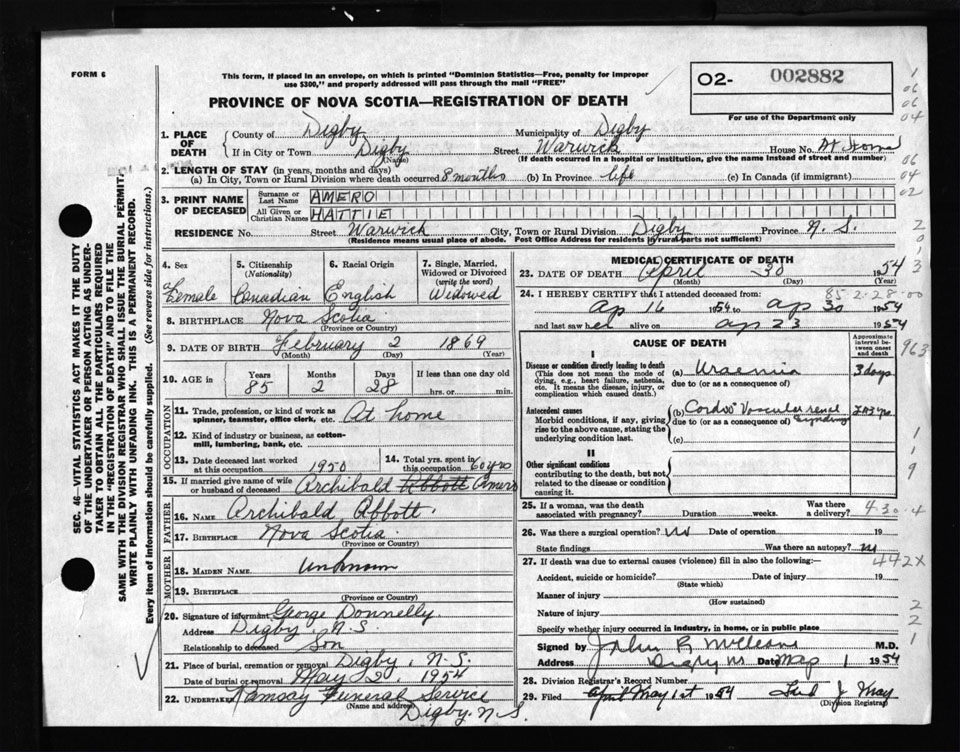 FORM 6
This form, if placed in an envelope, on which is printed "Dominion Statistics—Free, penalty for improper
use $300," and properly addressed will pass through the mail "FREE"
O2- 002882
For use of the Department only
PROVINCE OF NOVA SCOTIA—REGISTRATION OF DEATH
1. PLACE OF DEATH
County of Digby Municipality of Digby
If in City or Town Digby Street Warwick House No. At Home
(Name) (If death occurred in a hospital or institution, give the name instead of street and number)
2. LENGTH OF STAY (in years, months and days)
(a) In City, Town or Rural Division where death occurred 8 months (b) In Province life (c) In Canada (if immigrant)
3. PRINT NAME OF DECEASED
Surname or Last Name AMERO
All Given or Christian Names HATTIE
RESIDENCE No. Street Warwick City, Town or Rural Division Digby Province N. S.
(Residence means usual place of abode. Post Office Address for residents in rural parts not sufficient)
4. Sex Female
5. Citizenship (Nationality) Canadian
6. Racial Origin English
7. Single, Married, Widowed or Divorced (write the word) Widowed
8. BIRTHPLACE Nova Scotia
(Province or Country)
9. DATE OF BIRTH February 2 1869
(Month) (Day) (Year)
10. AGE in Years Months Days If less than one day old
85 2 28 hrs. or min.
OCCUPATION
11. Trade, profession, or kind of work as spinner, teamster, office clerk, etc. At home
12. Kind of industry or business, as cotton-mill, lumbering, bank, etc.
13. Date deceased last worked at this occupation 1950
14. Total yrs. spent in this occupation 60 yrs
15. If married give name of wife or husband of deceased Archibald Abbott Amero
FATHER
16. NAME Archibald Abbott.
17. BIRTHPLACE Nova Scotia
(Province or Country)
MOTHER
18. MAIDEN NAME Unknown
19. BIRTHPLACE
(Province or Country)
20. Signature of informant George Donnelly.
Address Digby N.S.
Relationship to deceased Son
21. Place of burial, cremation or removal Digby, N.S.
Date of burial or removal May 2, 1954
22. UNDERTAKER Ramsay Funeral Service
(Name and address) Digby. N.S.
MEDICAL CERTIFICATE OF DEATH
23. DATE OF DEATH April 30 1954
(Month) (Day)
24. I HEREBY CERTIFY that I attended deceased from: 85 2-28-00
Ap 16 1954 to Ap 30 1954
and last saw her alive on Ap 23 1954
CAUSE OF DEATH
Approximate interval between onset and death
I
Disease or condition directly leading to death
(This does not mean the mode of dying, e.g., heart failure, asthenia, etc. It means the disease, injury, or complication which caused death.)
(a) Uraemia 3 days
due to (or as a consequence of)
Antecedent causes
Morbid conditions, if any, giving rise to the above cause, stating the underlying condition last.
(b) Cardio Vascular renal
due to (or as a consequence of)
(c)
II
Other significant conditions
contributing to the death, but not related to the disease or condition causing it.
25. If a woman, was the death associated with pregnancy? Duration weeks. Was there a delivery?
26. Was there a surgical operation? Date of operation 19
State findings Was there an autopsy?
27. If death was due to external causes (violence) fill in also the following:—
Accident, suicide or homicide? Date of injury 19
(State which)
Manner of injury
(How sustained)
Nature of injury
Specify whether injury occurred in industry, in home, or in public place
Signed by John R McCleave M.D.
Address Digby NS Date May 1 1954
28. Division Registrar's Record Number
29. Filed April May 1st 1954 Fred J May
(Division Registrar)
SEC. 46—VITAL STATISTICS ACT MAKES IT THE DUTY
OF THE UNDERTAKER OR PERSON ACTING AS UNDER-
TAKER TO OBTAIN ALL THE PARTICULARS REQUIRED
IN THE "REGISTRATION OF DEATH" AND TO FILE THE
SAME WITH THE DIVISION REGISTRAR WHO SHALL ISSUE THE BURIAL PERMIT.
WRITE PLAINLY WITH UNFADING INK. THIS IS A PERMANENT RECORD.
Every item of information should be carefully supplied. (See reverse side for instructions.)
963
430.4
442X